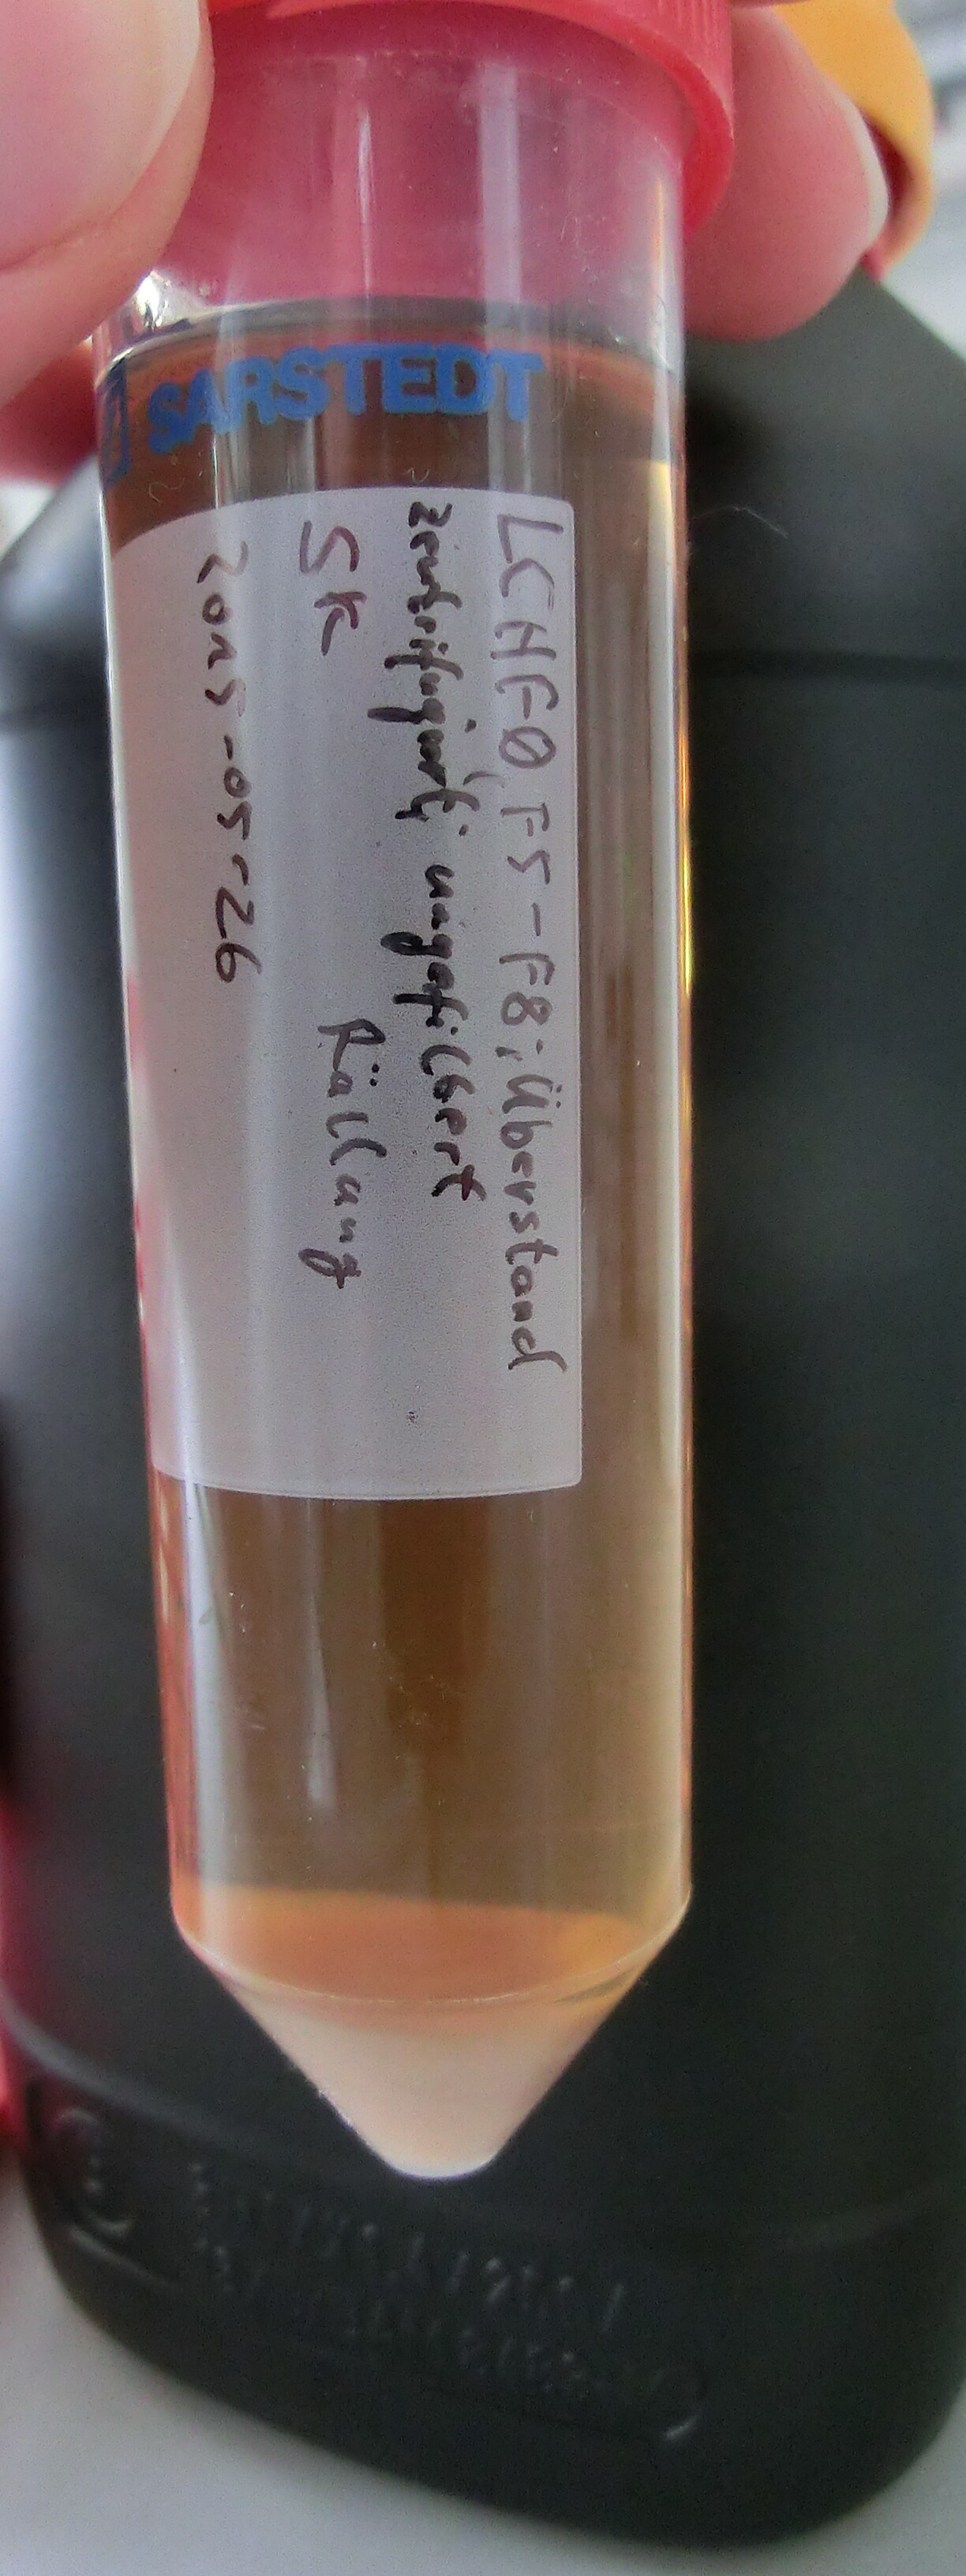 SARSTEDT
LCHF0, F5-F8; Überstand
zentrifugiert; ungefiltert
SK
Fällung
2025-05-26